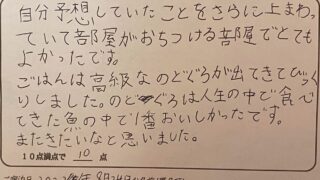 自分予想していたことをさらに上まわっ
ていて部屋がおちつける部屋でとても
よかったです。
ごはんは高級なのどぐろが出てきてびっく
りしました。のどぐろは人生の中で食べ
てきた魚の中で1番おいしかったです。
またきたいなと思いました。
10点満点で 10 点